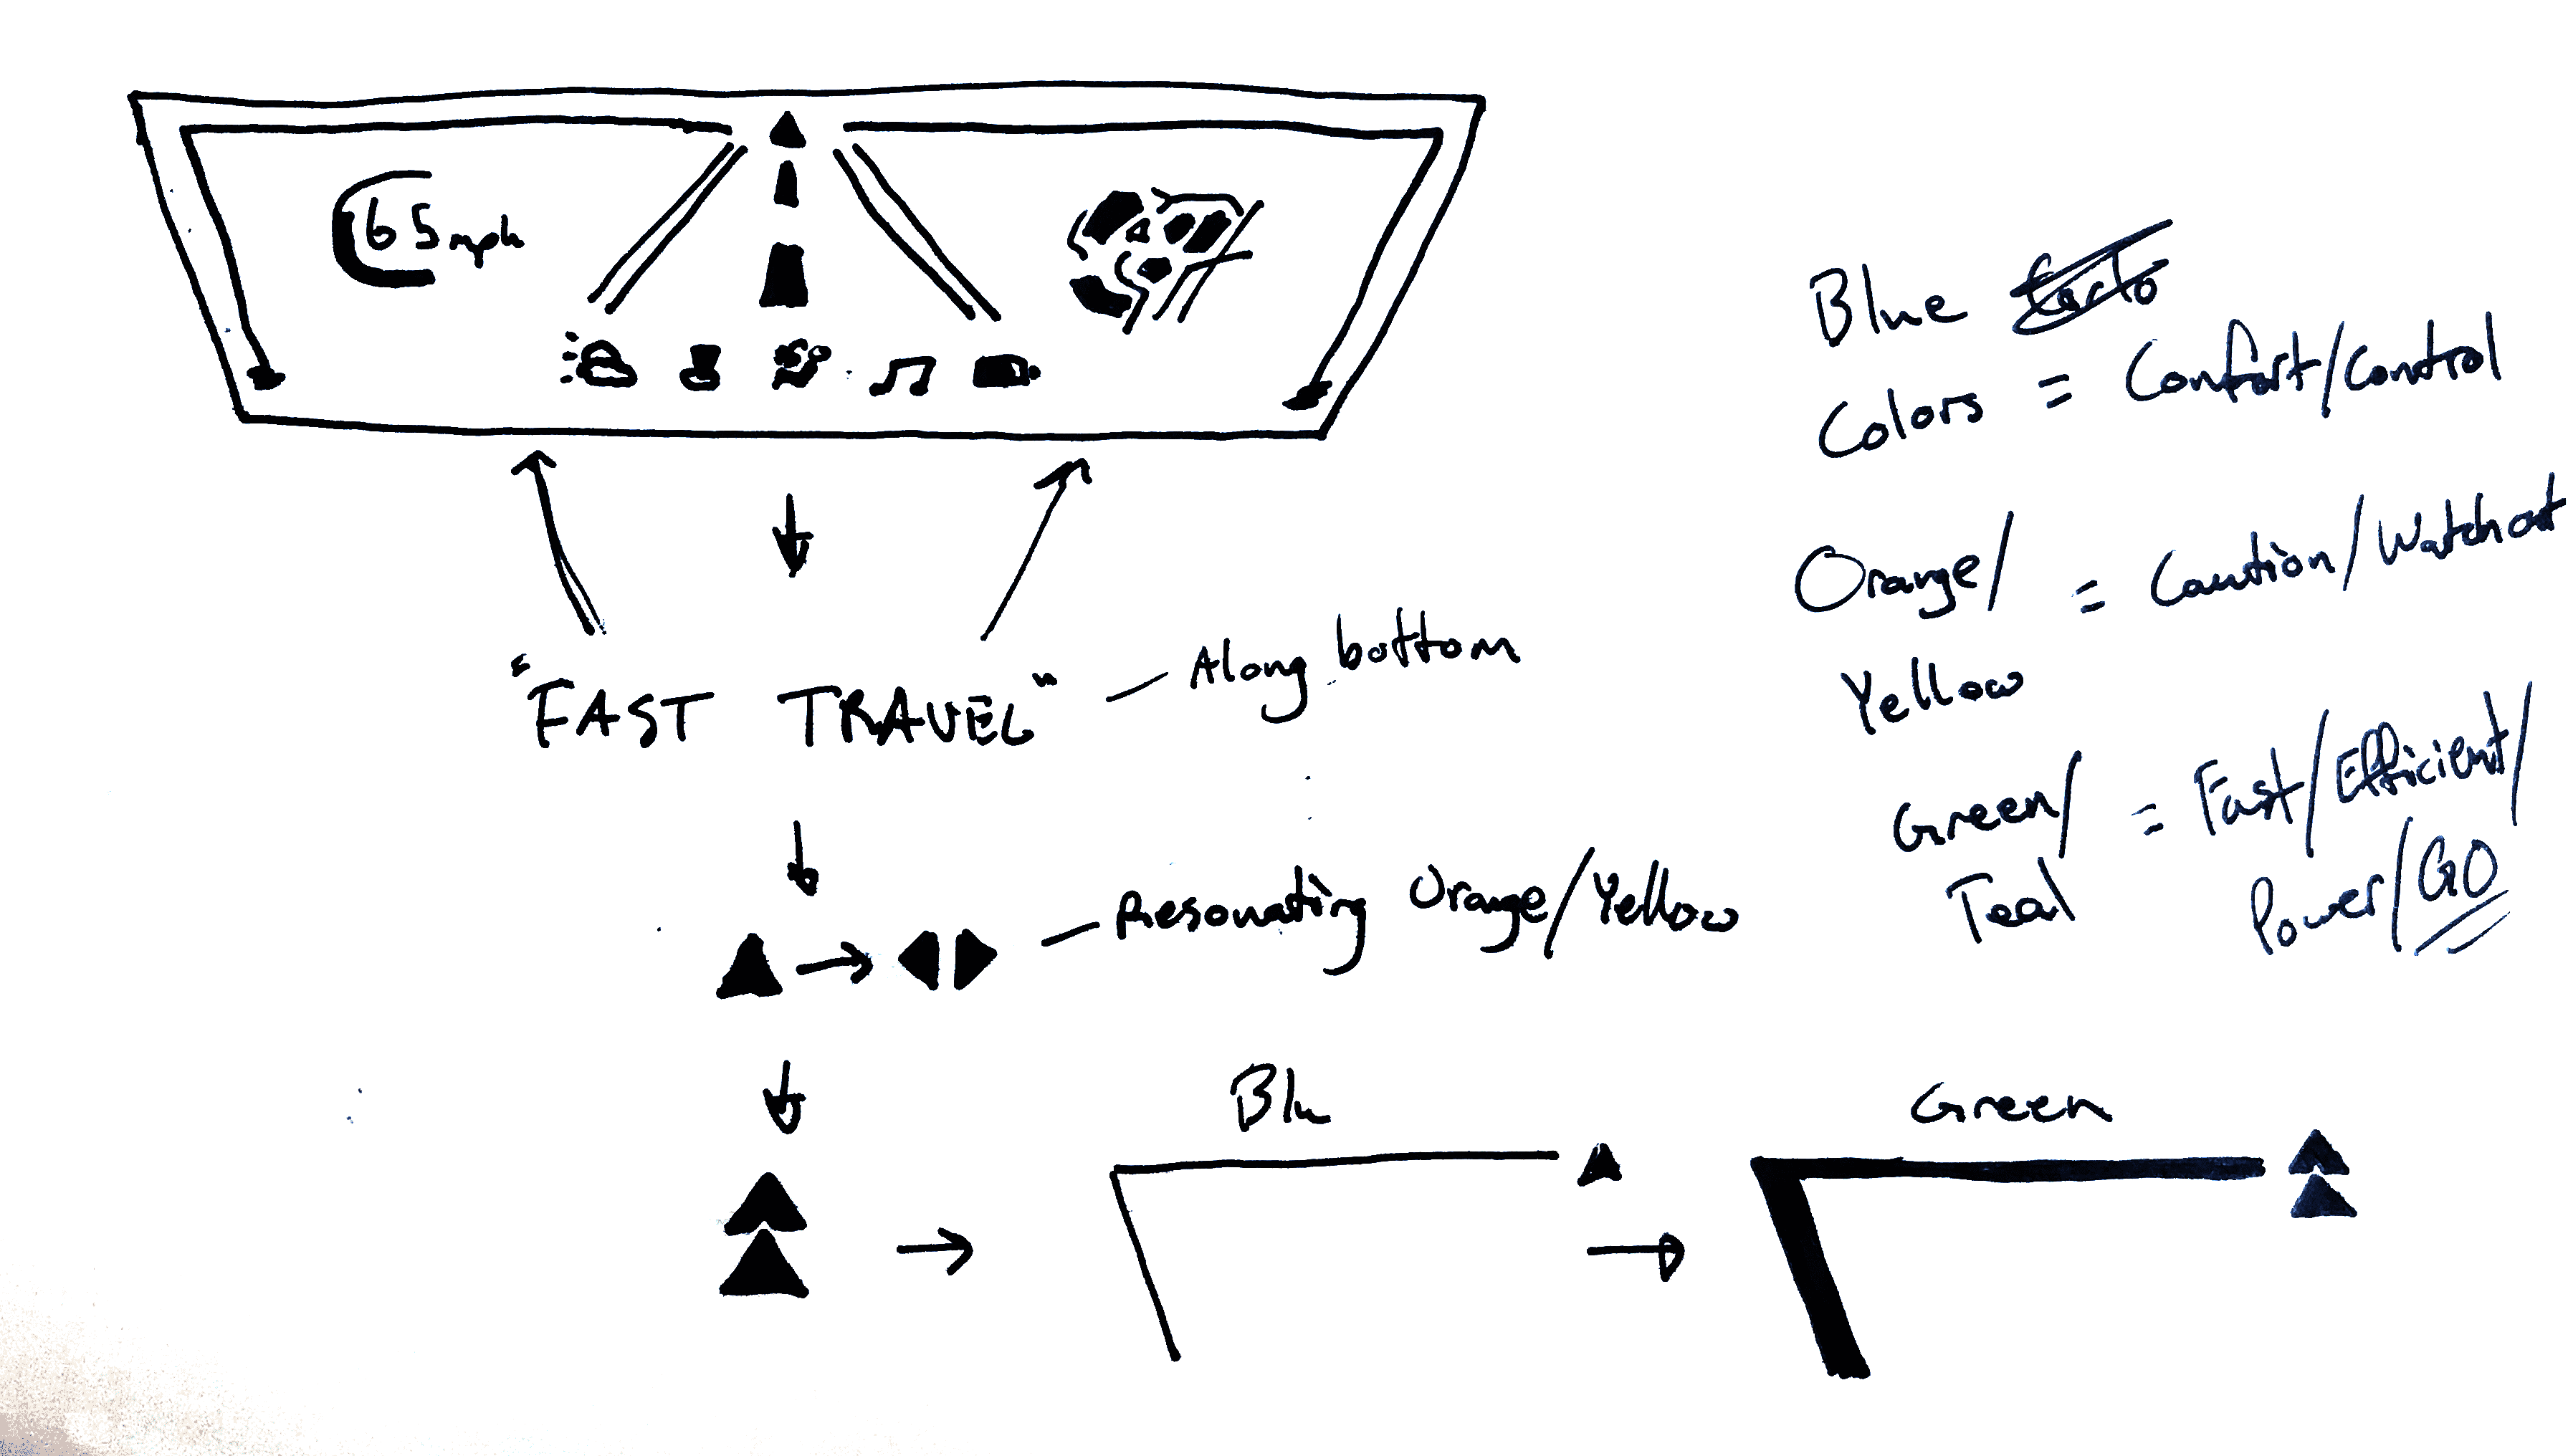 65mph
"FAST TRAVEL" - Along bottom
- Resonating Orange/Yellow
Blu
Green
Blue
Colors = Comfort/Control
Orange/
Yellow = Caution/Watchout
Green/
Teal = Fast/Efficient/
Power/GO